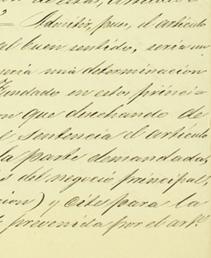 Admitir, pues, el artículo
el buen sentido, sería un
una determinacion
fundado en estos princi
on que desechando de
sentencia el artículo
la parte demandada,
s del negocio principal,
cion) y cite para la
prevenida por el artº